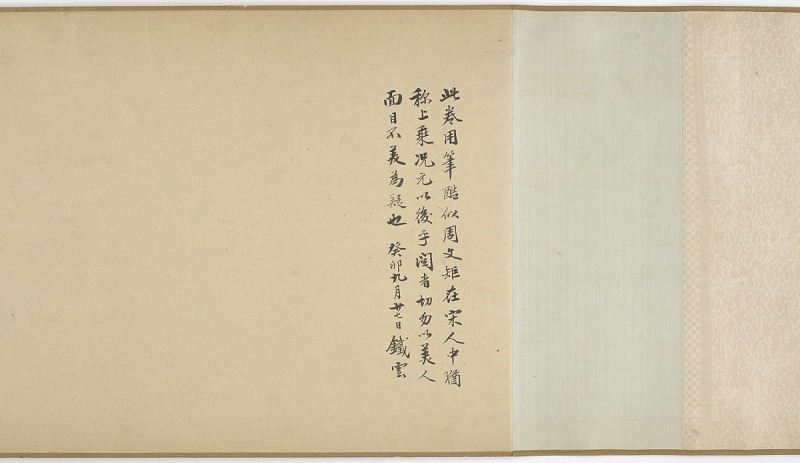 此卷用筆酷似周文矩在宋人中猶
称上乗况元以後乎閱者切勿以美人
面目不美為疑也 癸卯九月廿七日 鐵雲